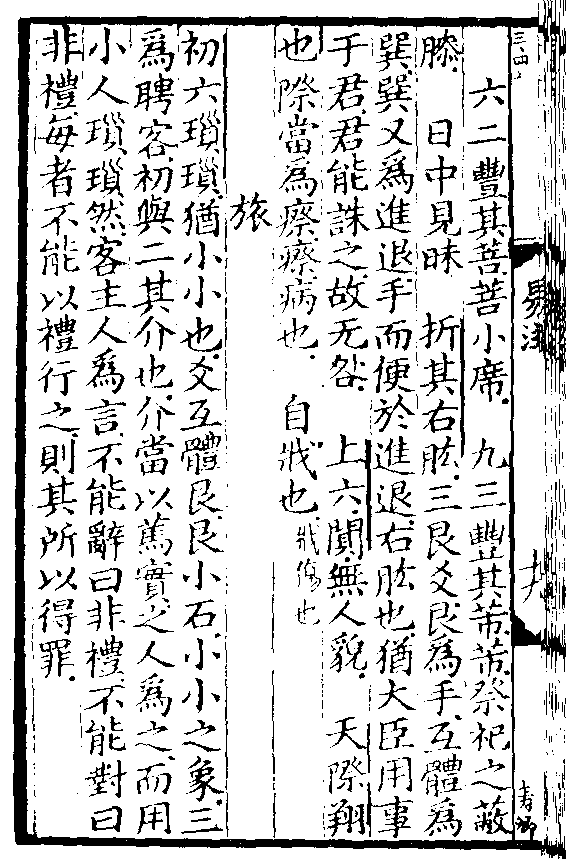 六二豐其菩菩小席　九三豐其芾芾祭祀之蔽
膝　日中見昧　折其右肱三艮爻艮爲手互體爲
巽巽又爲進退手而便於進退右肱也猶大臣用事
于君君能誅之故无咎　上六闃無人貌　天際翔
也際當爲瘵瘵病也　自戕也戕傷也
旅
初六瑣瑣猶小小也爻互體艮艮小石小小之象三
爲聘客初與二其介也介當以篤實之人爲之而用
小人瑣瑣然客主人爲言不能辭曰非禮不能對曰
非禮每者不能以禮行之則其所以得罪